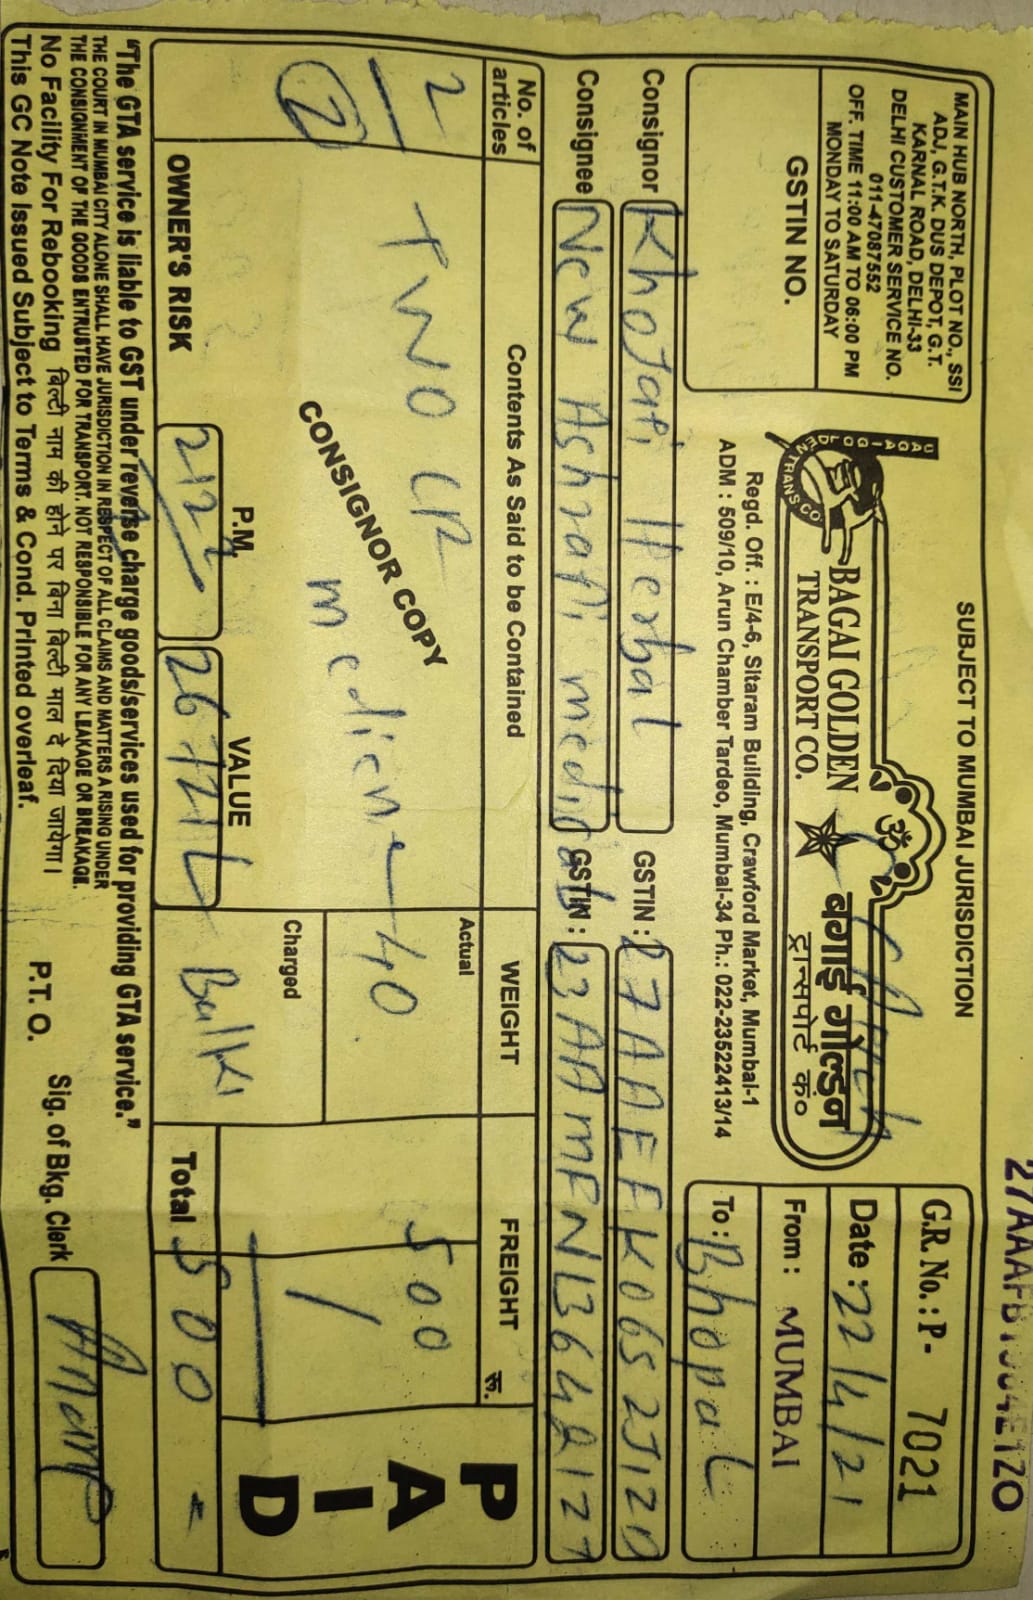 SUBJECT TO MUMBAI JURISDICTION
MAIN HUB NORTH, PLOT NO., SSI
ADJ, G.T.K. DUS DEPOT, G.T.
KARNAL ROAD, DELHI-33
DELHI CUSTOMER SERVICE NO.
011-47087552
OFF. TIME 11:00 AM TO 06:00 PM
MONDAY TO SATURDAY
GSTIN NO.
BAGAI GOLDEN
TRANSPORT CO.
बगाई गोल्डन
ट्रान्सपोर्ट कं०
Regd. Off. : E/4-6, Sitaram Building, Crawford Market, Mumbai-1
ADM : 509/10, Arun Chamber Tardeo, Mumbai-34 Ph.: 022-23522413/14
G.R. No. : P- 7021
Date : 22/4/21
From : MUMBAI
To : Bhopal
Consignor Khojati Herbal GSTIN : 27AAEFK0652J1ZO
Consignee New Ashrafi medical GSTIN :
No. of articles Contents As Said to be Contained WEIGHT FREIGHT रू.
2
2
TWO CP
medicine
CONSIGNOR COPY
Actual
40
Charged
500
PAID
OWNER'S RISK P.M. 212 VALUE Total 500
"The GTA service is liable to GST under reverse charge goods/services used for providing GTA service."
THE COURT IN MUMBAI CITY ALONE SHALL HAVE JURISDICTION IN RESPECT OF ALL CLAIMS AND MATTERS A RISING UNDER
THE CONSIGNMENT OF THE GOODS ENTRUSTED FOR TRANSPORT. NOT RESPONSIBLE FOR ANY LEAKAGE OR BREAKAGE.
No Facility For Rebooking बिल्टी नाम की होने पर बिना बिल्टी माल दे दिया जायेगा।
This GC Note Issued Subject to Terms & Cond. Printed overleaf. P.T.O. Sig. of Bkg. Clerk